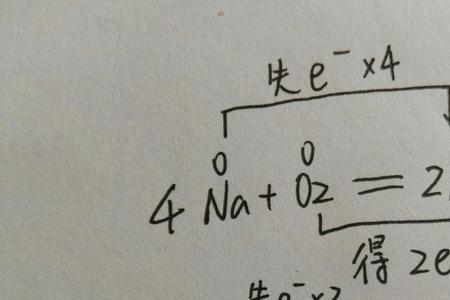 失e⁻×4
0 0
4Na+O₂=2
得2e
失e⁻×2